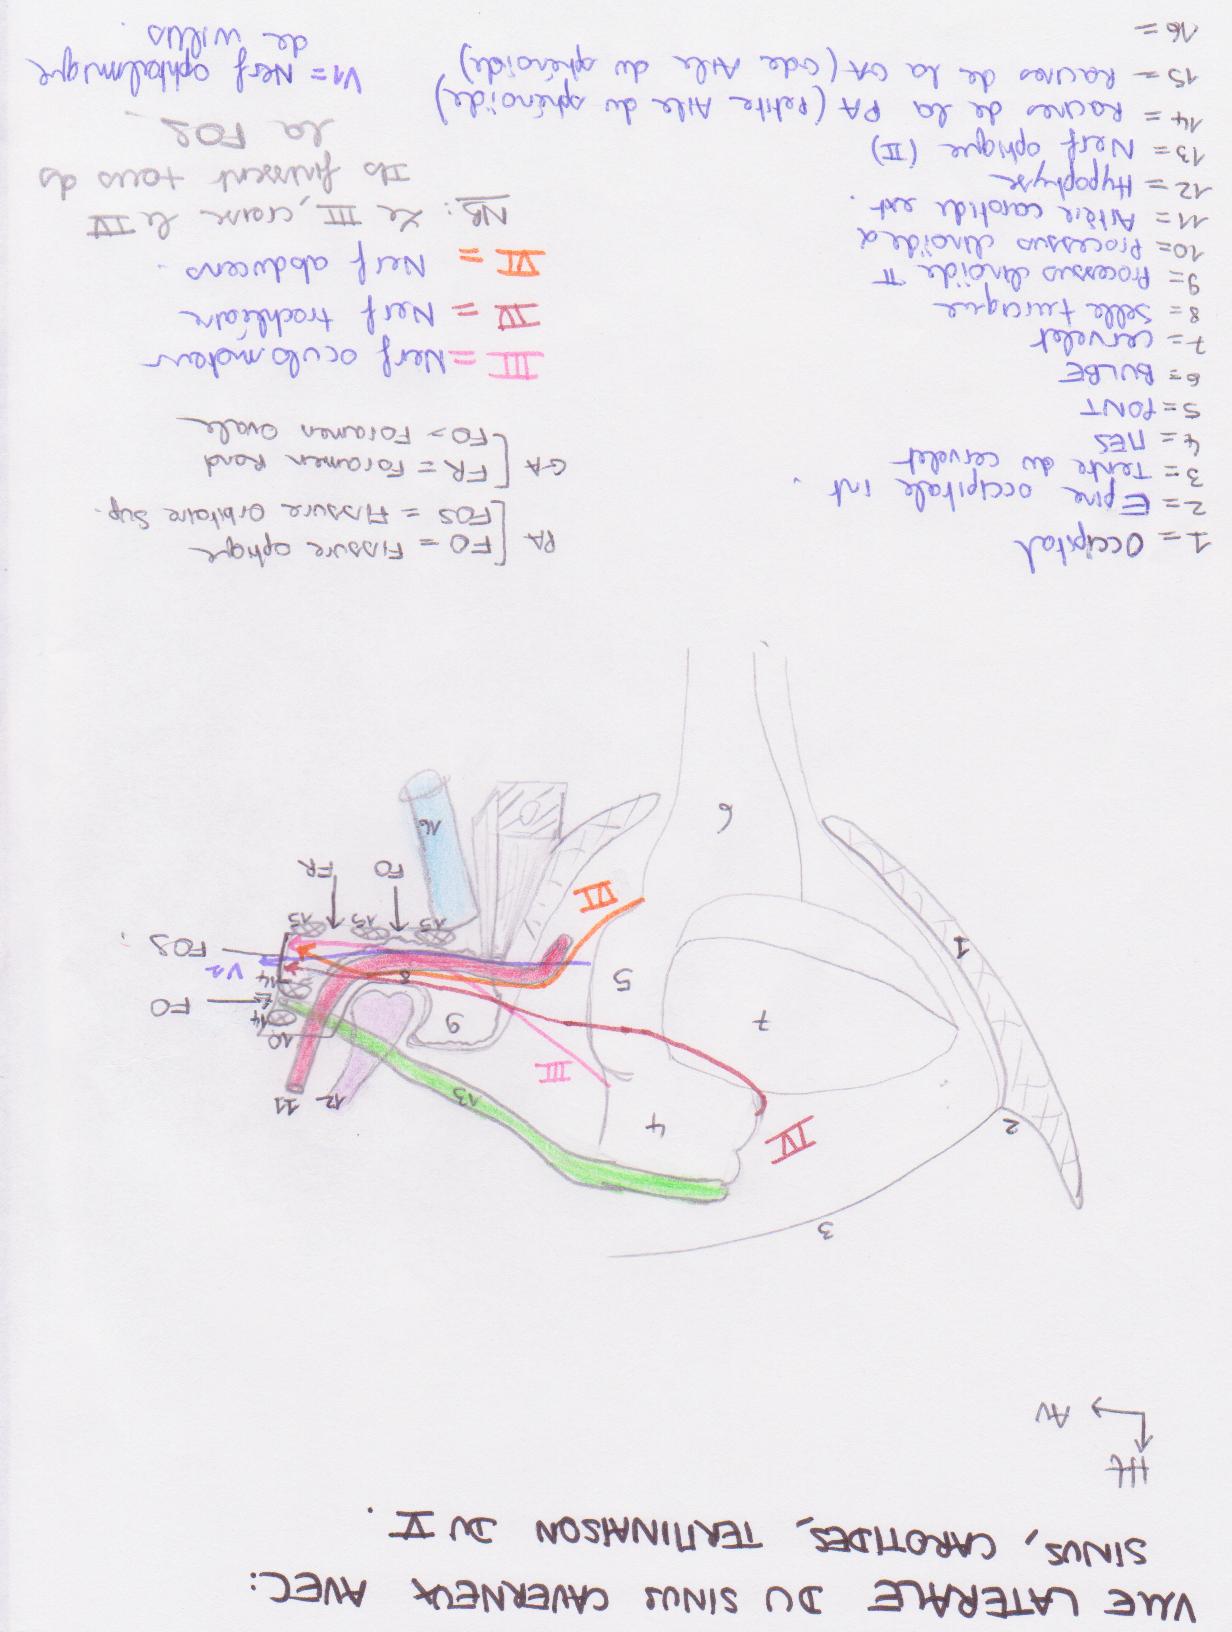 VUE LATERALE DU SINUS CAVERNEUX AVEC:
SINUS, CAROTIDES, TERMINAISON DU V.
Ht
AV
3
2
IV
4
13
12
11
III
10
14
9
7
FO
14
8
5
V1
FOS
1
15
15
15
VI
FR
FO
6
16
1 = Occipital
2 = Epine occipitale int.
3 = Tente du cervelet
4 = MES
5 = PONT
6 = BULBE
7 = cervelet
8 = Selle turcique
9 = Processus clinoïde P
10 = Processus clinoïde a
11 = Artère carotide ext.
12 = Hypophyse
13 = Nerf optique (II)
14 = Racines de la PA (Petite Aile du sphénoïde)
15 = Racines de la GA (Gde Aile du sphénoïde)
16 =
PA [FO = Fissure optique
[FOS = Fissure orbitaire Sup.
GA [FR = Foramen Rond
[FO = Foramen Ovale
III = Nerf oculomoteur
IV = Nerf trochléaire
VI = Nerf abducens.
NB: Le III, croise le IV
Ils finissent tous ds
la FOS.
V1 = Nerf ophtalmique
de willis.